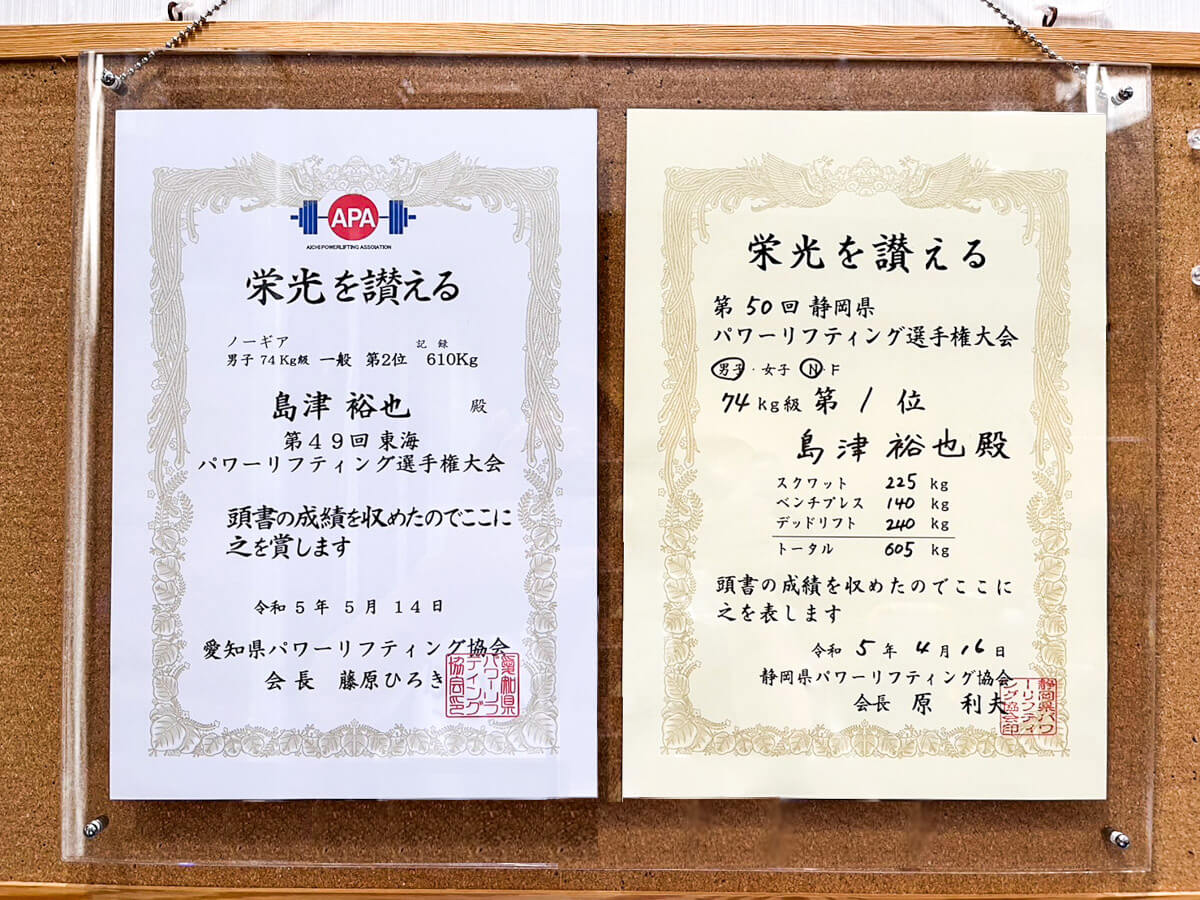 APA
AICHI POWERLIFTING ASSOIATION
栄光を讃える
ノーギア 記録
男子 74Kg級 一般 第2位 610Kg
島津 裕也 殿
第49回 東海
パワーリフティング選手権大会
頭書の成績を収めたのでここに
之を賞します
令和 5 年 5 月 14 日
愛知県パワーリフティング協会
会長 藤原ひろき
愛知県
パワーリフ
ティング
協会印
栄光を讃える
第 50 回 静岡県
パワーリフティング選手権大会
男子・女子 N・F
74 kg級 第 1 位
島津 裕也 殿
スクワット 225 kg
ベンチプレス 140 kg
デッドリフト 240 kg
トータル 605 kg
頭書の成績を収めたのでここに
之を表します
令和 5 年 4 月 16 日
静岡県パワーリフティング協会
会長 原 利夫
静岡県パワ
ーリフティ
ング協会印